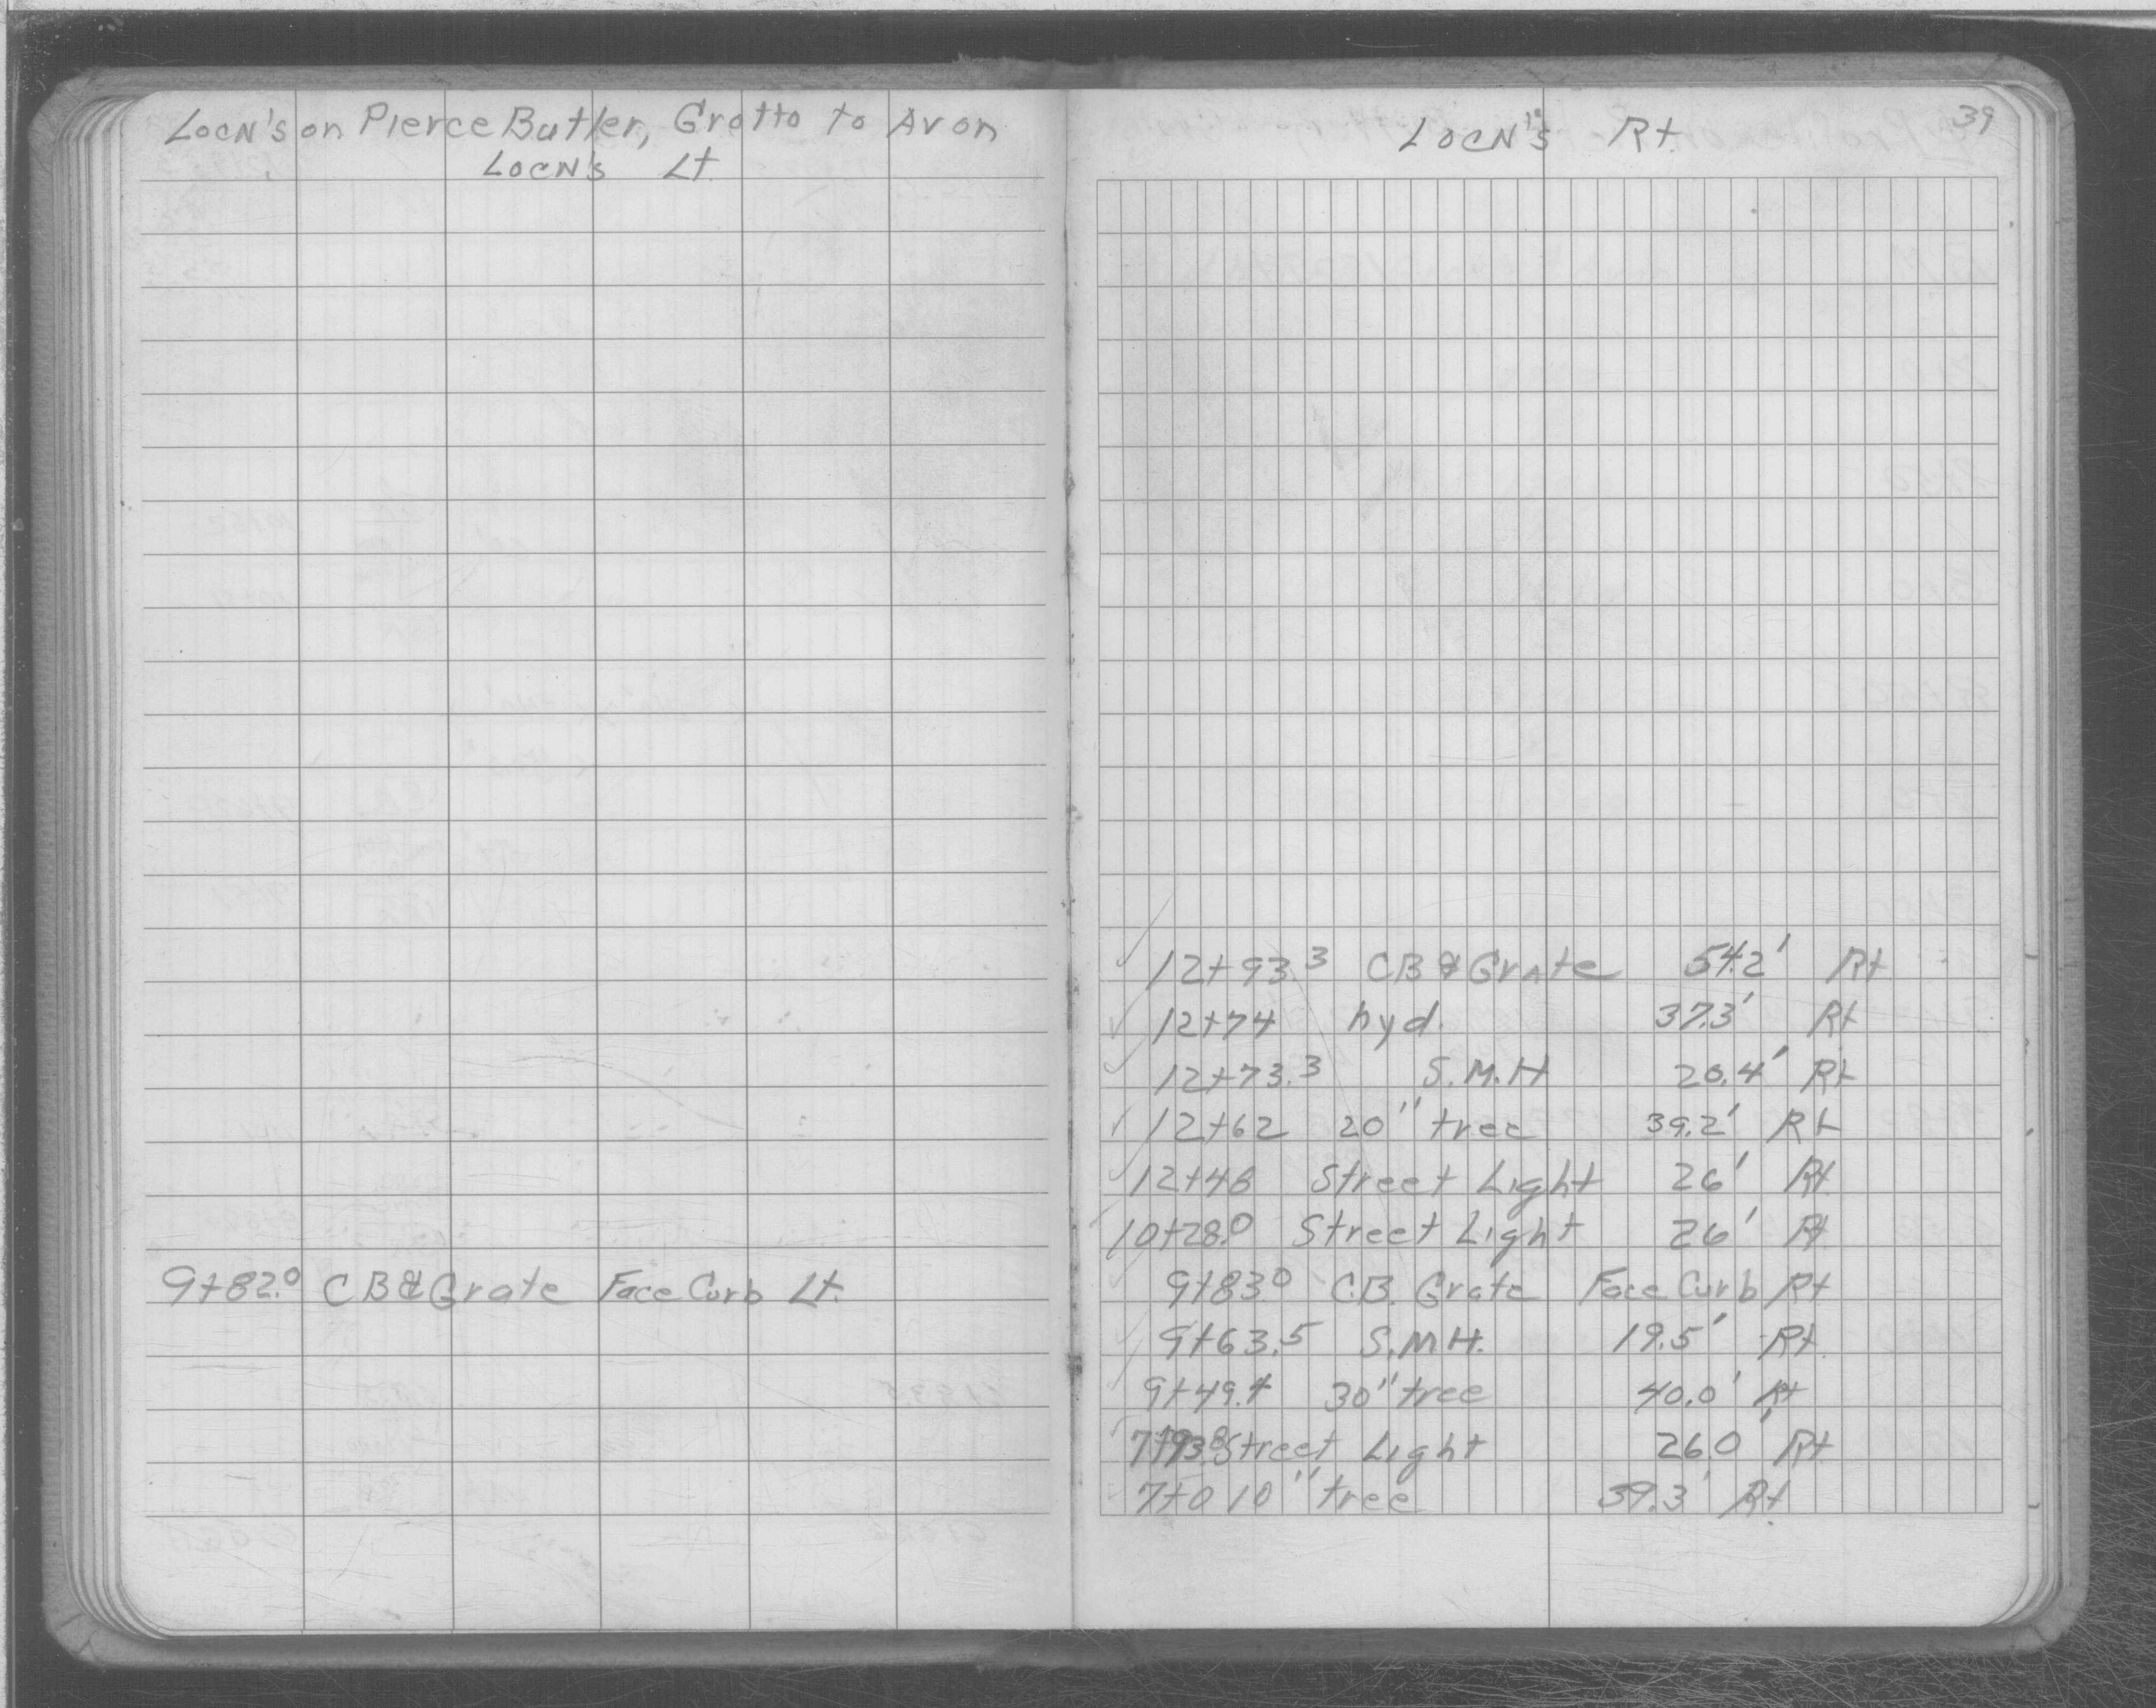 Locn's on Pierce Butler, Grotto to Avon
Locn's Lt.
9+82.0 CB & Grate Face Curb Lt.
39
Locn's Rt.
12+93.3 CB & Grate 54.2' Rt
12+74 hyd. 37.3' Rt
12+73.3 S.M.H 20.4' Rt
12+62 20" tree 39.2' Rt
12+48 Street Light 26' Rt
10+28.0 Street Light 26' Rt
9+83.0 C.B. Grate Face Curb Rt
9+63.5 S.M.H. 19.5' Rt.
30" tree 40.0' Rt
Street Light 26.0' Rt
7+0 10" tree 39.3' Rt